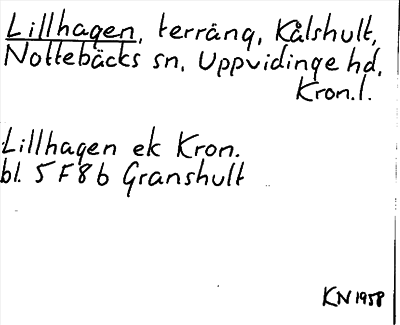 Lillhagen, terräng, Kålshult,
Nottebäcks sn, Uppvidinge hd,
Kron.l.
Lillhagen ek Kron.
bl. 5 F 8 b Granshult
KN 1958